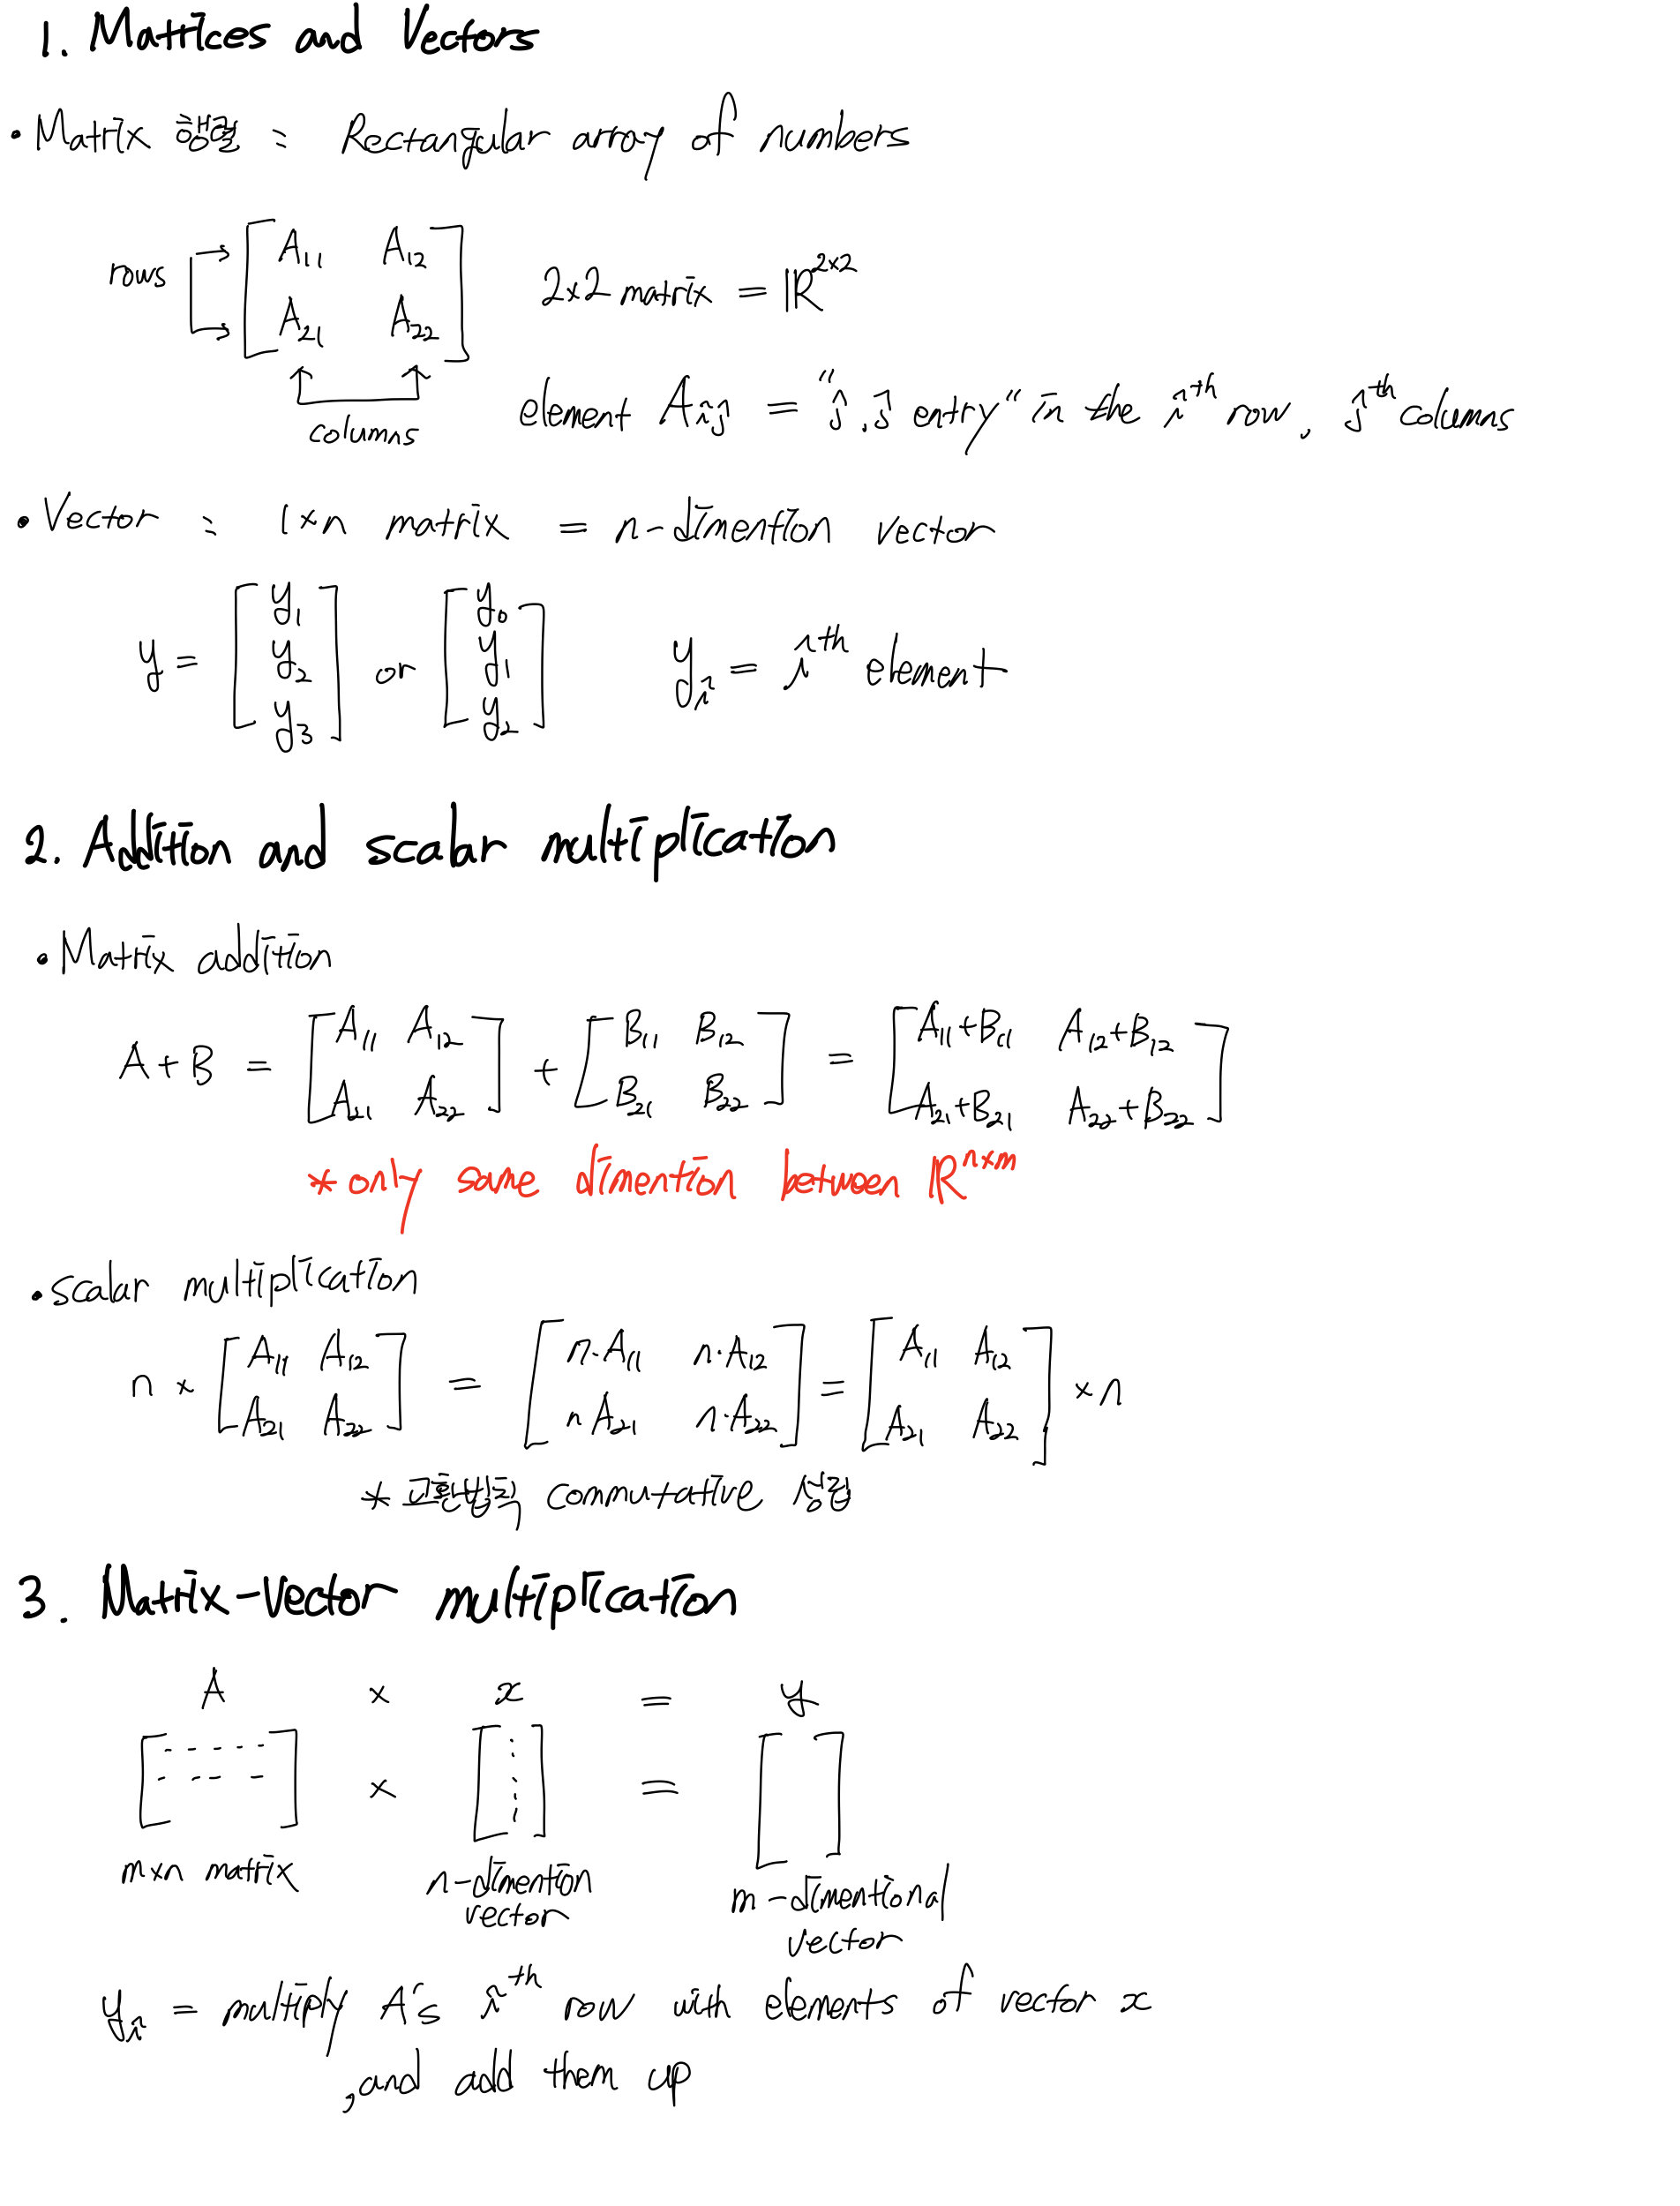 1. Matrices and Vectors
• Matrix 행렬 : Rectangular array of numbers
rows [A₁₁ A₁₂
A₂₁ A₂₂]
columns
2×2 matrix = ℝ²ˣ²
element Aᵢⱼ = "i,j entry" in the iᵗʰ row, jᵗʰ columns
• Vector : 1×n matrix = n-dimention vector
y = [y₁ y₂ y₃] or [y₀ y₁ y₂] yᵢ = iᵗʰ element
2. Addition and scalar multiplication
• Matrix addition
A+B = [A₁₁ A₁₂
A₂₁ A₂₂] + [B₁₁ B₁₂
B₂₁ B₂₂] = [A₁₁+B₁₁ A₁₂+B₁₂
A₂₁+B₂₁ A₂₂+B₂₂]
* only same dimention between ℝⁿˣᵐ
• scalar multiplication
n × [A₁₁ A₁₂
A₂₁ A₂₂] = [n·A₁₁ n·A₁₂
n A₂₁ n·A₂₂] = [A₁₁ A₁₂
A₂₁ A₂₂] × n
* 교환법칙 commutative 성립
3. Matrix-Vector multiplication
A × x = y
[ ] × [ ] = [ ]
m×n matrix
n-dimention
vector
m-dimentional
vector
yᵢ = multiply A's iᵗʰ row with elements of vector x
, and add them up